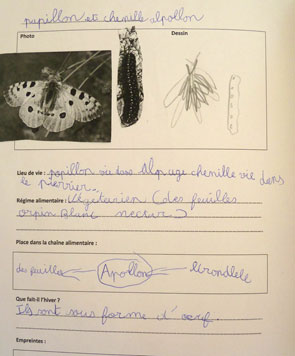 papillon et chenille apollon
Photo Dessin
Lieu de vie : papillon vie dans Alpage chenille vie dans
le pierrier.
Régime alimentaire : Végétarien (des feuilles
orpin Blanc nectar)
Place dans la chaîne alimentaire :
des feuilles Apollon
Que fait-il l'hiver ?
Ils sont sous forme d'oeuf.
Empreintes :